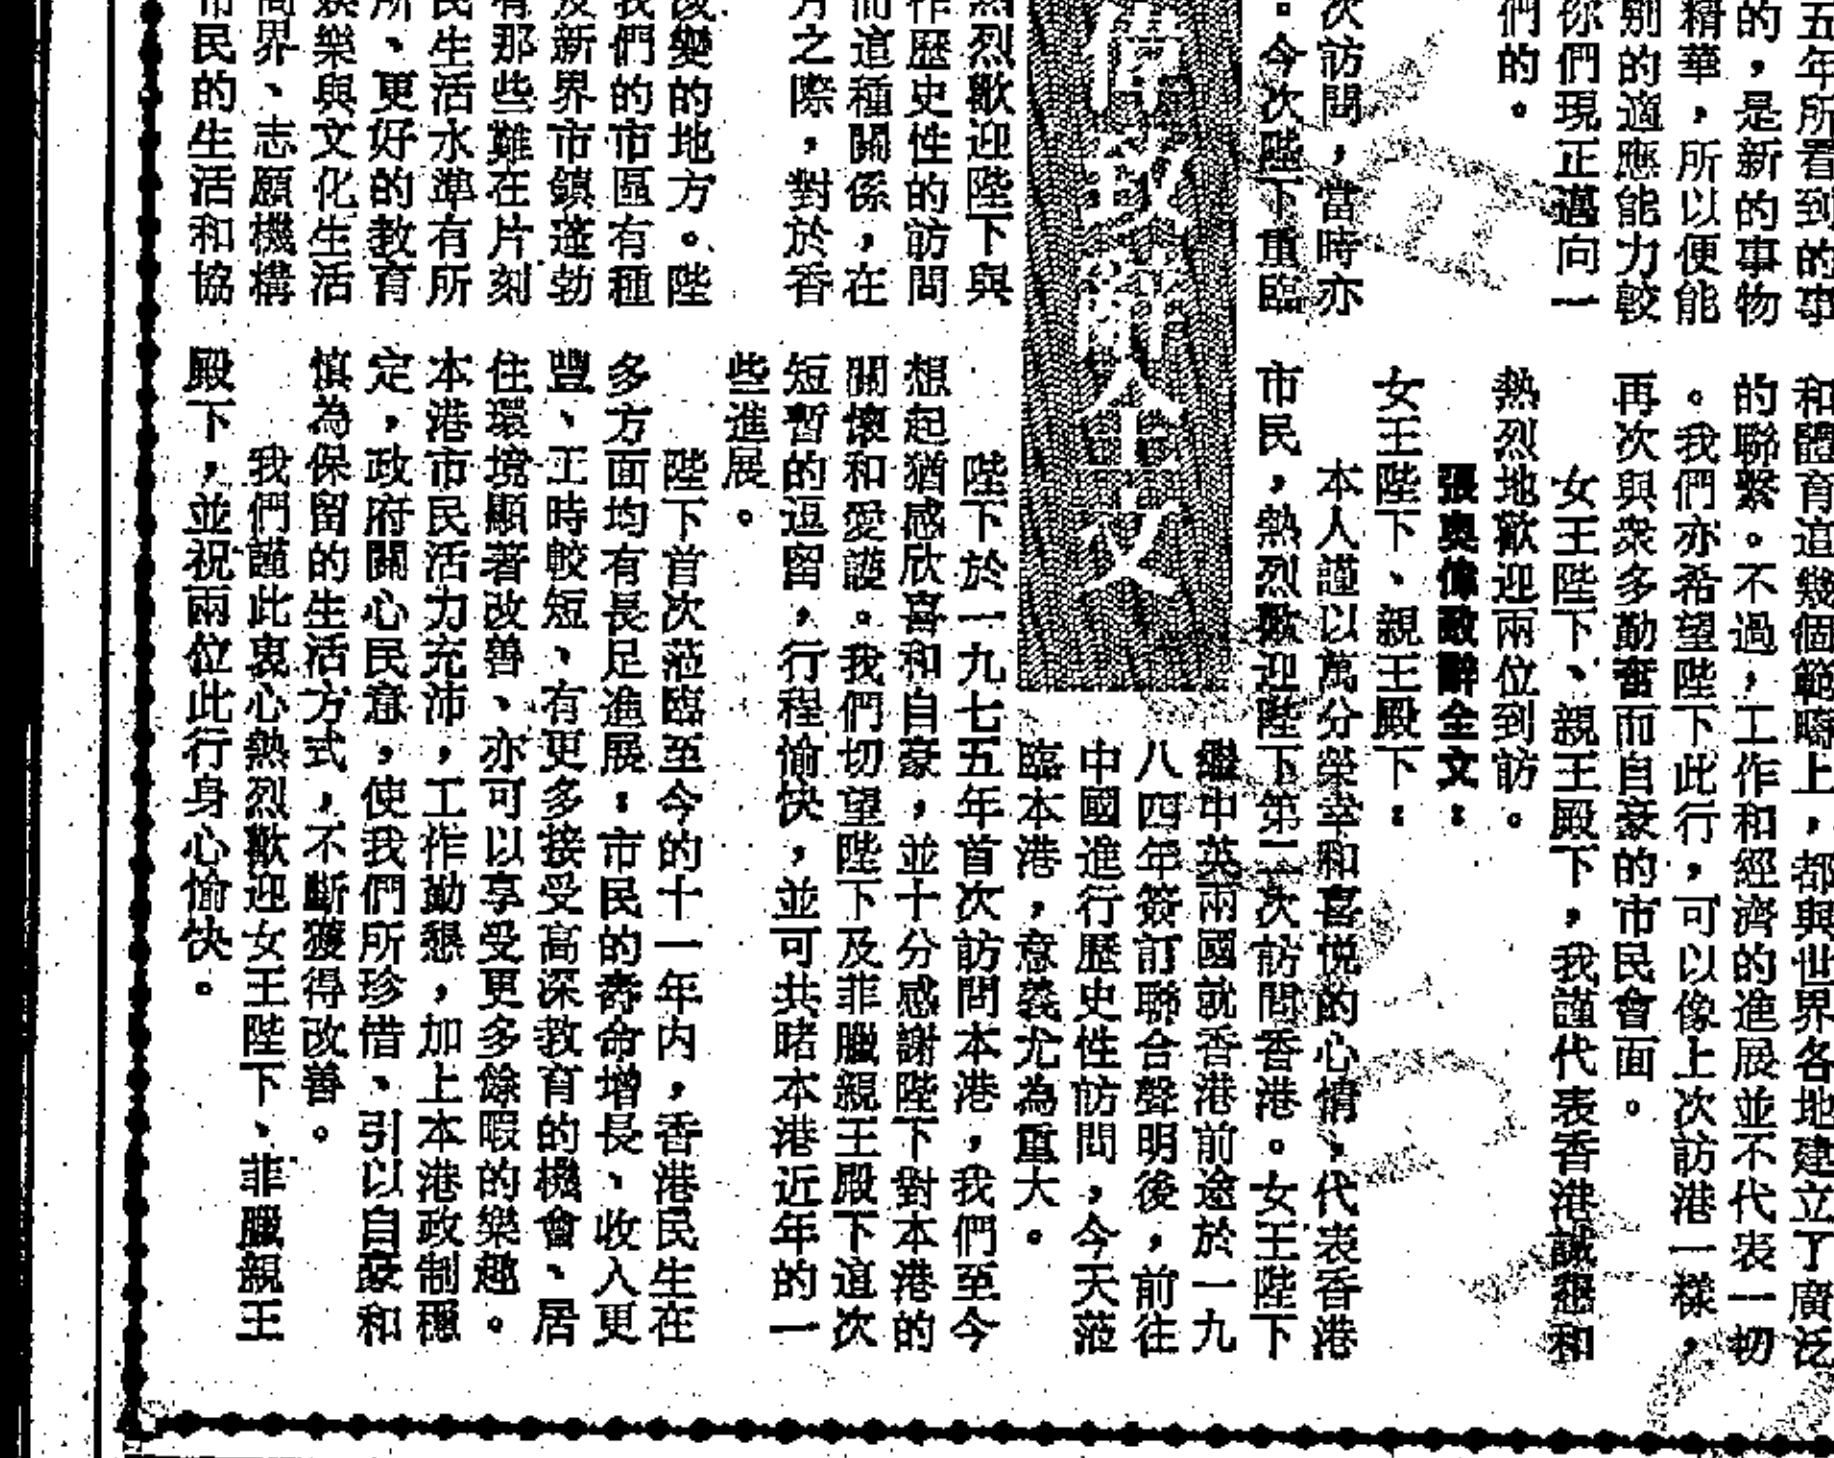 五年所看到的事
的，是新的事物
精華，所以便能
別的適應能力較
你們現正邁向一
們的。
次訪問，當時亦
。今次陛下重臨
偉致辭全文
熱烈歡迎陛下與
作歷史性的訪問
而這種關係，在
月之際，對於香
變的地方。陛
我們的市區有種
及新界市鎮蓬勃
有那些難在片刻
民生活水準有所
所、更好的教育
娛樂與文化生活
商界、志願機構
市民的生活和協
和體育這幾個範疇上，都與世界各地建立了廣泛
的聯繫。不過，工作和經濟的進展並不代表一切
。我們亦希望陛下此行，可以像上次訪港一樣，
再次與衆多勤奮而自豪的市民會面。
女王陛下、親王殿下，我謹代表香港誠懇和
熱烈地歡迎兩位到訪。
張奧偉致辭全文：
女王陛下、親王殿下：
本人謹以萬分榮幸和喜悅的心情，代表香港
市民，熱烈歡迎陛下第二次訪問香港。女王陛下
繼中英兩國就香港前途於一九
八四年簽訂聯合聲明後，前往
中國進行歷史性訪問，今天蒞
臨本港，意義尤為重大。
陛下於一九七五年首次訪問本港，我們至今
想起猶感欣喜和自豪，並十分感謝陛下對本港的
關懷和愛護。我們切望陛下及菲臘親王殿下這次
短暫的逗留，行程愉快，並可共睹本港近年的一
些進展。
陛下首次蒞臨至今的十一年内，香港民生在
多方面均有長足進展：市民的壽命增長、收入更
豐、工時較短、有更多接受高深教育的機會、居
住環境顯著改善、亦可以享受更多餘暇的樂趣。
本港市民活力充沛，工作勤懇，加上本港政制穩
定，政府關心民意，使我們所珍惜、引以自豪和
慎為保留的生活方式，不斷獲得改善。
我們謹此衷心熱烈歡迎女王陛下、菲臘親王
殿下，並祝兩位此行身心愉快。